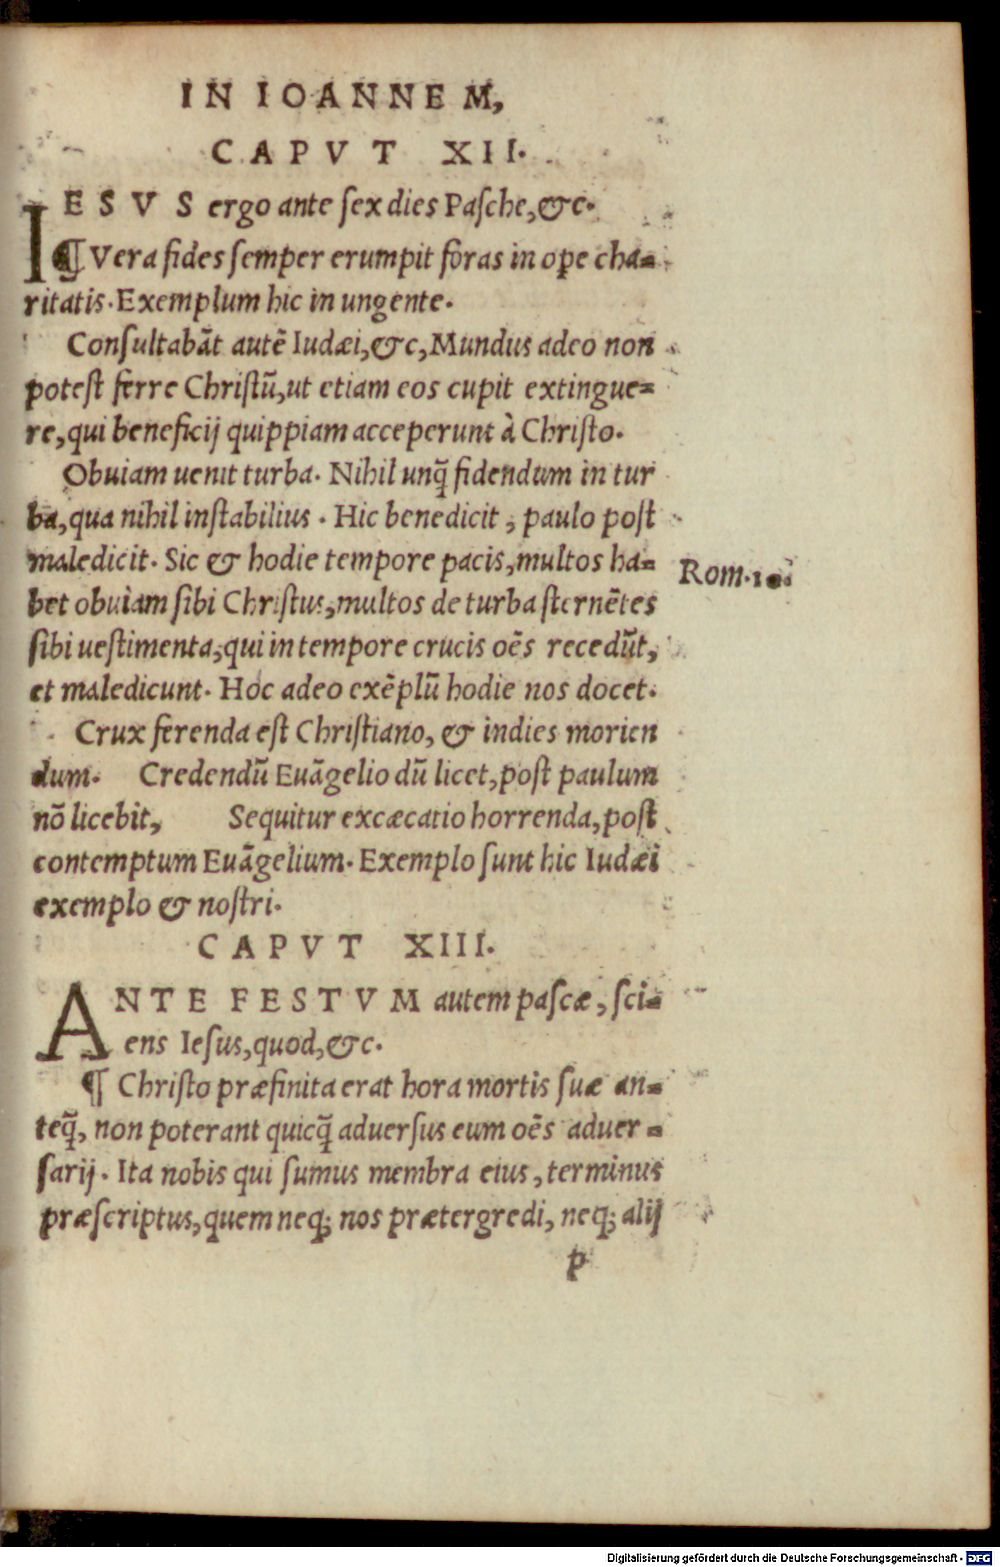 IN IOANNEM,
CAPVT XII.
IESVS ergo ante ſex dies Paſche, &c.
¶ Vera fides ſemper erumpit foras in ope cha=
ritatis. Exemplum hic in ungente.
Conſultabãt autẽ Iudæi, &c, Mundus adeo non
poteſt ferre Chriſtũ, ut etiam eos cupit extingue=
re, qui beneficij quippiam acceperunt à Chriſto.
Obuiam uenit turba. Nihil unq̃ fidendum in tur
ba, qua nihil inſtabilius. Hic benedicit, paulo poſt
maledicit. Sic & hodie tempore pacis, multos ha=
Rom.
bet obuiam ſibi Chriſtus, multos de turba ſternẽtes
ſibi ueſtimenta, qui in tempore crucis oẽs recedũt,
et maledicunt. Hoc adeo exẽplũ hodie nos docet.
Crux ferenda eſt Chriſtiano, & indies morien
dum. Credendũ Euãgelio dũ licet, poſt paulum
nõ licebit, Sequitur excæcatio horrenda, poſt
contemptum Euãgelium. Exemplo ſunt hic Iudæi
exemplo & noſtri.
CAPVT XIII.
ANTE FESTVM autem paſcæ, ſci=
ens Ieſus, quod, &c.
¶ Chriſto præfinita erat hora mortis ſuæ an=
teq̃, non poterant quicq̃ aduerſus eum oẽs aduer=
ſarij. Ita nobis qui ſumus membra eius, terminus
præſcriptus, quem neq; nos prætergredi, neq; alij
p
Digitalisierung gefördert durch die Deutsche Forschungsgemeinschaft - DFG